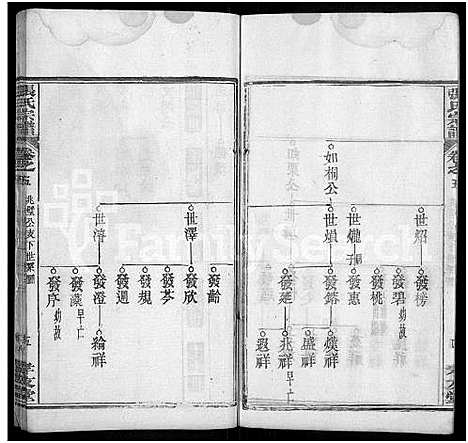 張氏宗譜
卷之五
如桐公
世炤
世爖
世熉
發榜
發碧 幼故
發桃
發惠
發鎔
發廷
熯祥
盛祥
兆祥 早亡
遐祥
張氏宗譜
卷之五
兆璽公支下世系圖
五
孝友堂
世澤
世濬
發齡
發欣
發芬
發規
發週
發澄
發藻 早亡
發序 幼故
綸祥
FamilySearch